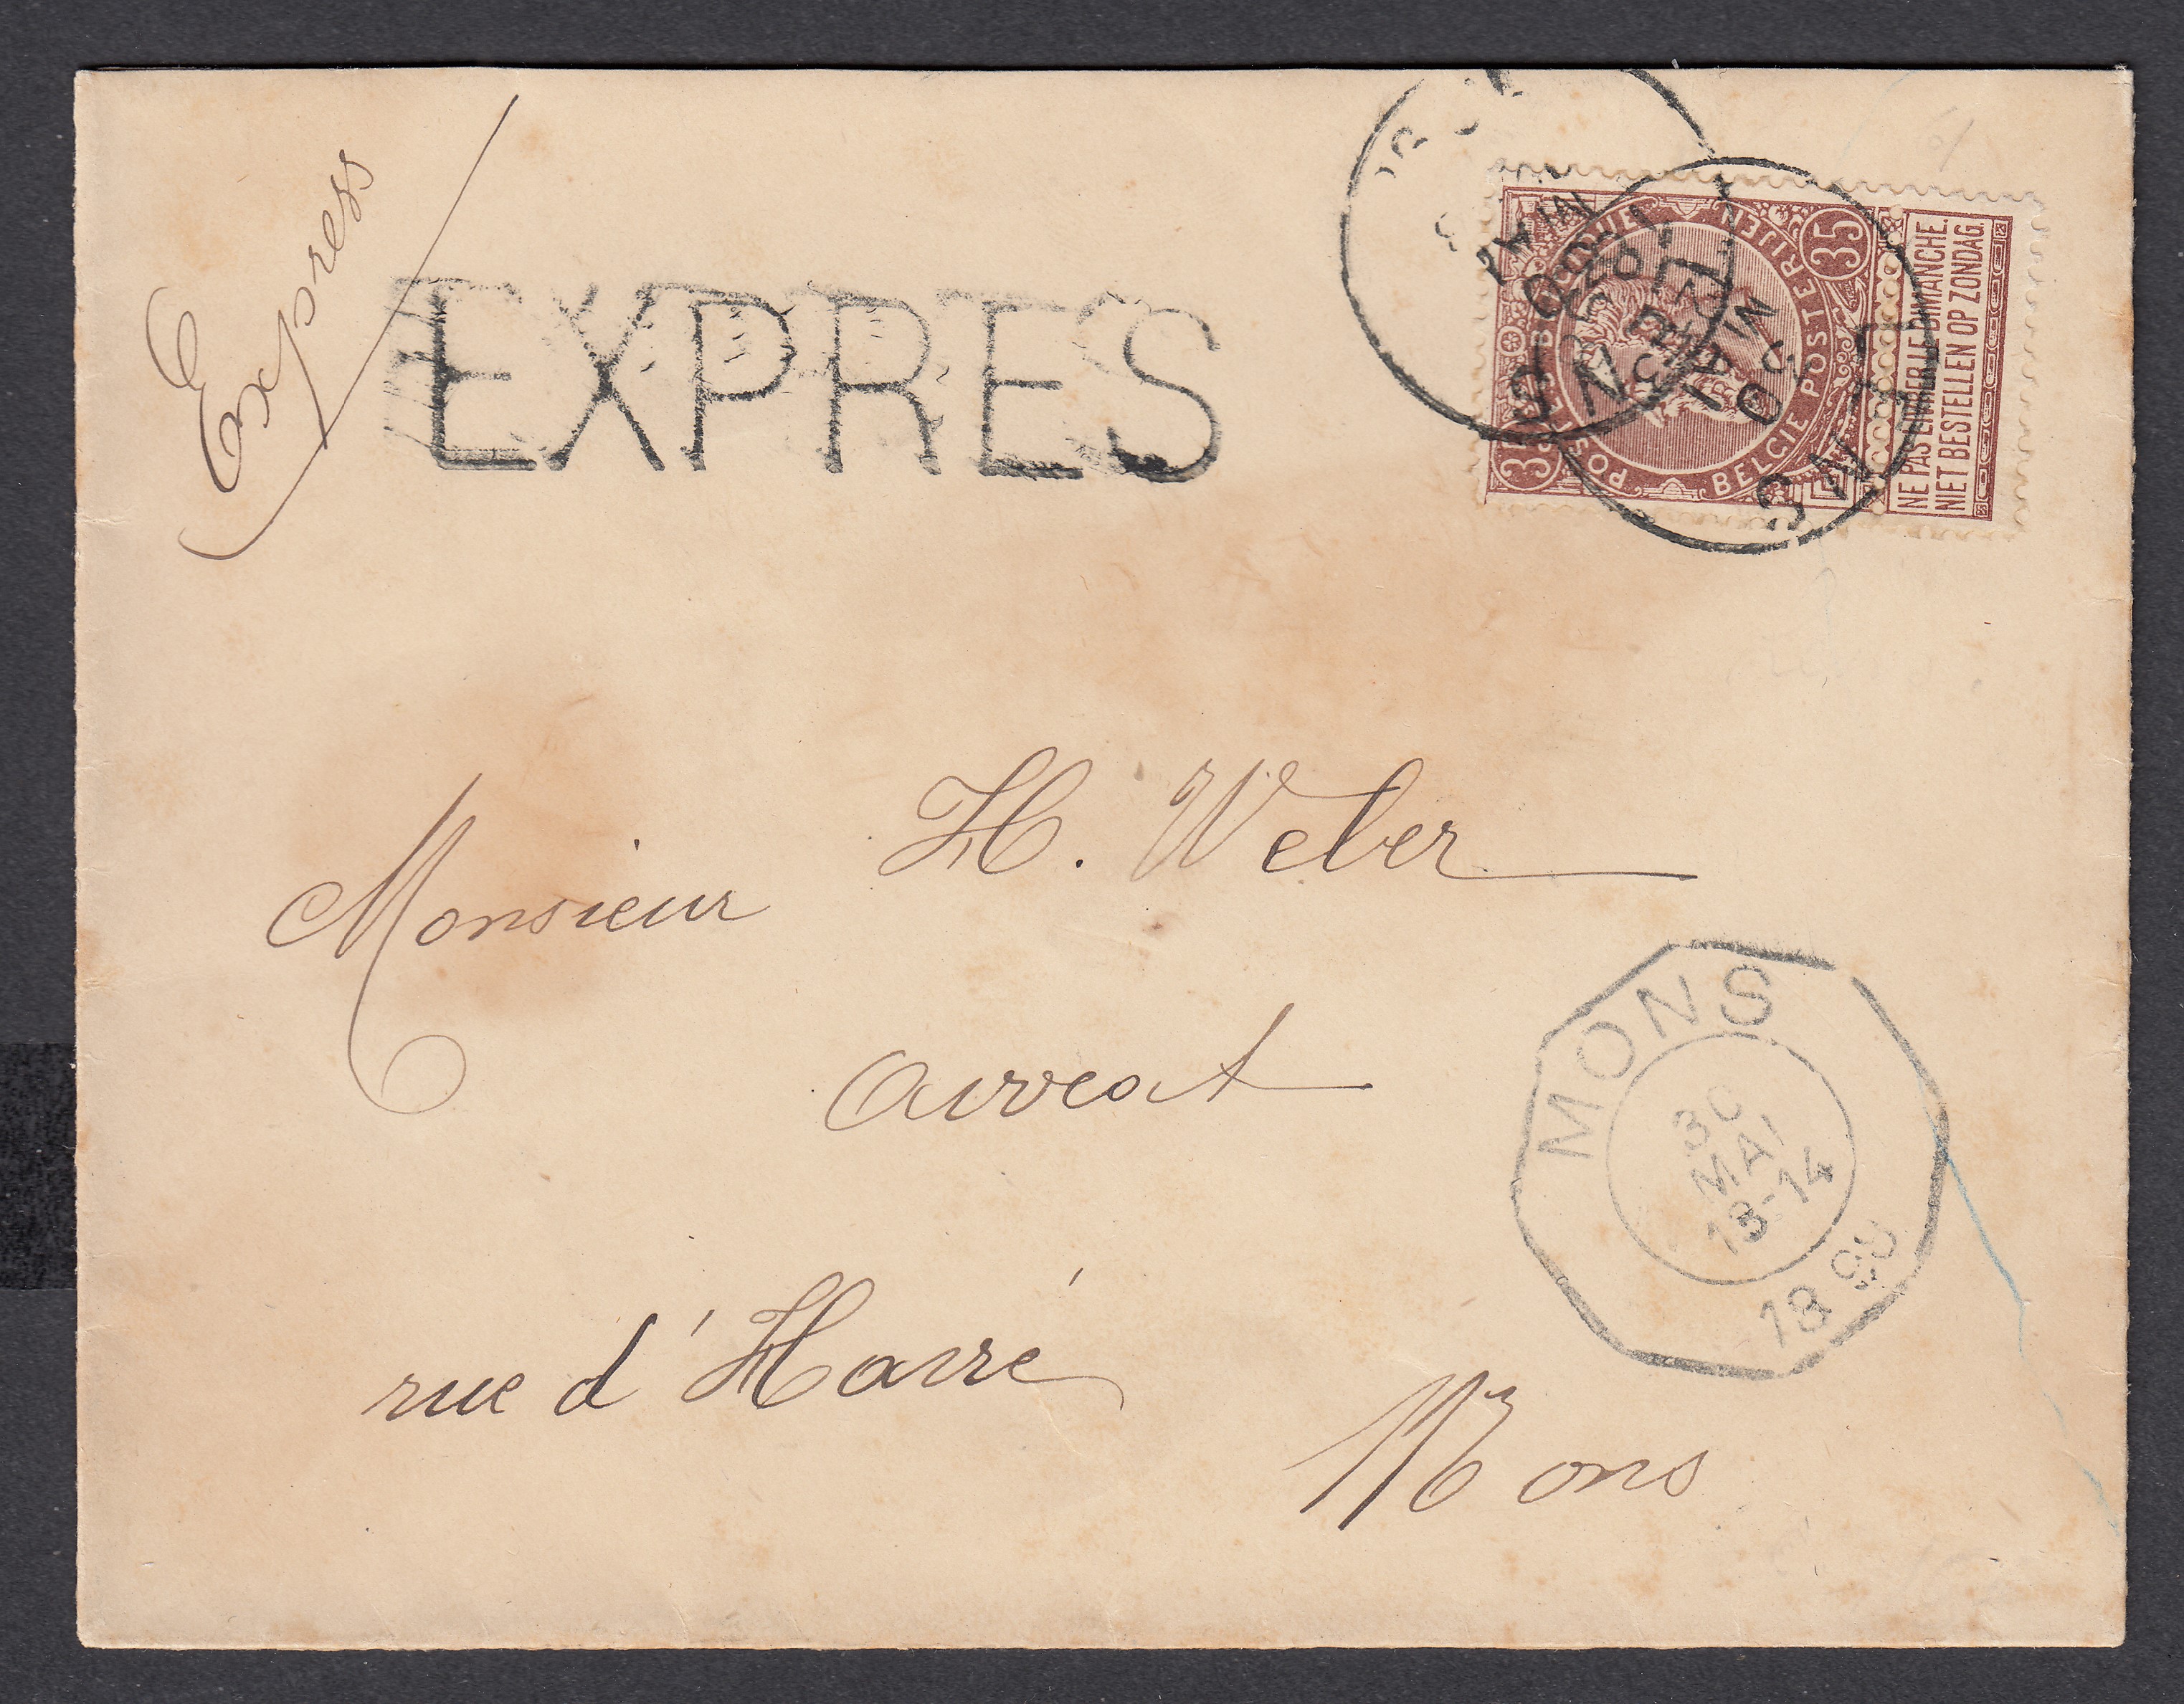 Express
EXPRES
35
POSTERIJEN
BELGIE
NE PAS LIVRER LE DIMANCHE.
NIET BESTELLEN OP ZONDAG.
Monsieur H. Weber
avocat
rue d'Havré
Mons
MONS
30
MAI
13-14